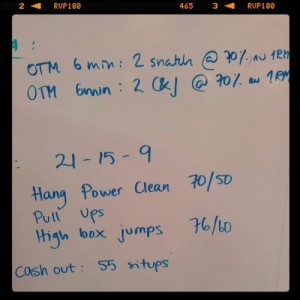 2 RVP100 465 3 RVP100
:
OTM 6 min: 2 snatch @ 70% av 1RM
OTM 6min: 2 C&J @ 70% av 1RM
:
21-15-9
Hang Power Clean 70/50
Pull Ups
High box jumps 76/60
Cash out: 55 situps